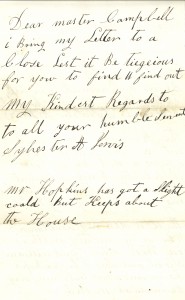 Dear master Campbell
i Bring my Letter to a
Close Lest it Be tiegeious
for you to find It find out
My Kindest Regards to
to all your humble Servant
Sylvester H
mr Hopkins has got a Slight
could but Keeps about
the House